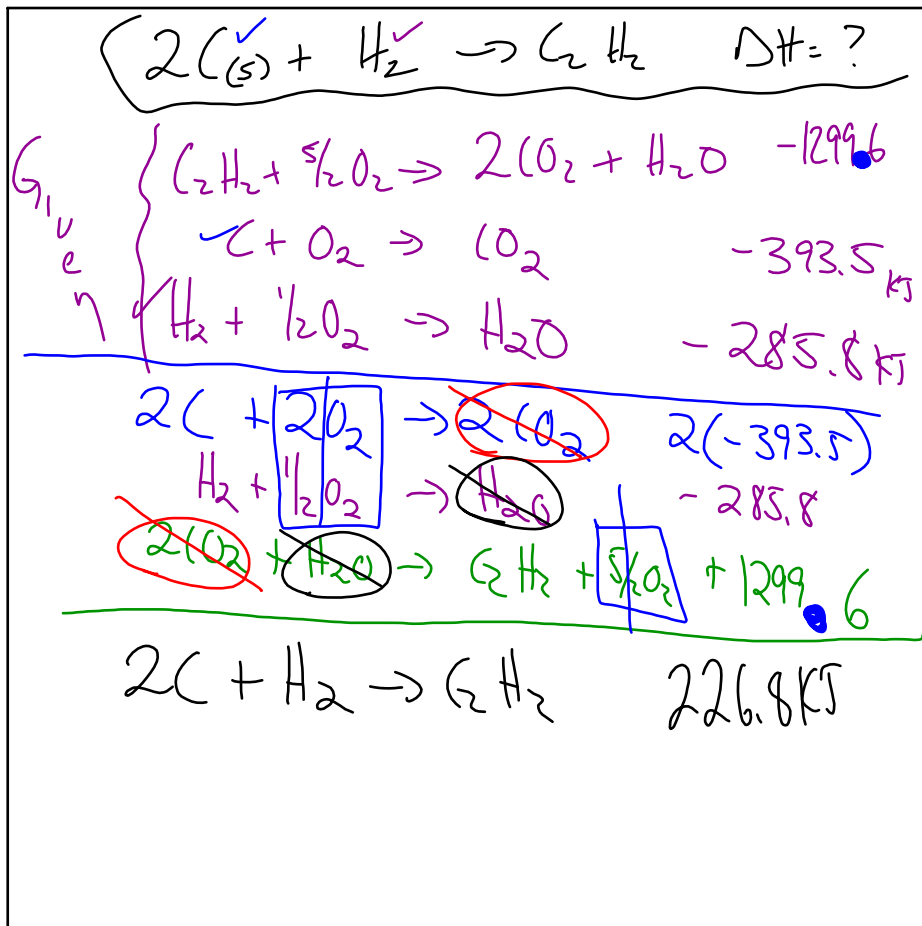 2C(s) + H2 → C2H2 ΔH = ?
Given
C2H2 + 5/2O2 → 2CO2 + H2O -1299.6
C + O2 → CO2 -393.5 KJ
H2 + 1/2O2 → H2O -285.8 KJ
2C + 2O2 → 2CO2 2(-393.5)
H2 + 1/2O2 → H2O -285.8
2CO2 + H2O → C2H2 + 5/2O2 +1299.6
2C + H2 → C2H2 226.8 KJ